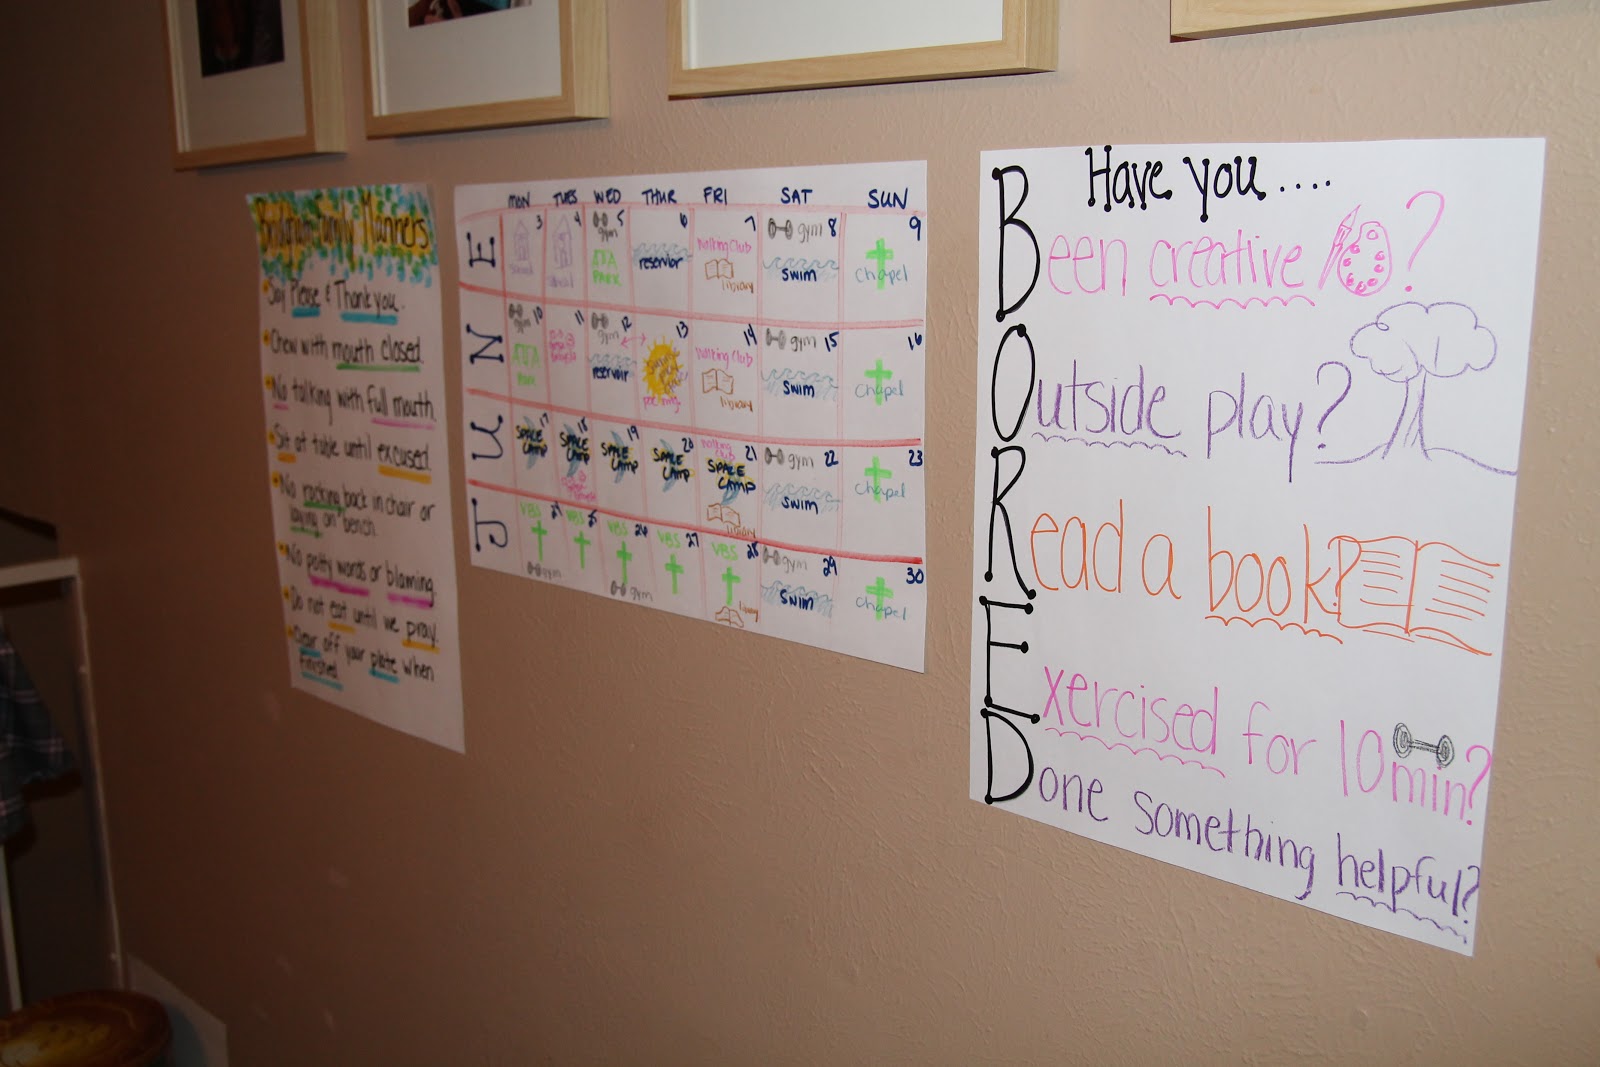 Family Manners
Say Please & Thank you.
Chew with mouth closed.
No talking with full mouth.
Sit at table until excused.
No rocking back in chair or
laying on bench.
No potty words or blaming.
Do not eat until we pray.
Clear off your plate when
finished
JUNE
MON TUES WED THUR FRI SAT SUN
3 4 5 6 7 8 9
gym Walking Club gym
school PARK reservoir library swim chapel
10 11 12 13 14 15 16
gym gym Walking Club gym
Park reservoir library swim chapel
17 18 19 20 21 22 23
Walking Club gym
SPACE CAMP SPACE CAMP SPACE CAMP SPACE CAMP SPACE CAMP swim chapel
library
24 25 26 27 28 29 30
VBS VBS VBS VBS VBS gym
gym gym library swim chapel
Have you ....
Been creative ?
Outside play?
Read a book?
Exercised for 10 min?
Done something helpful?